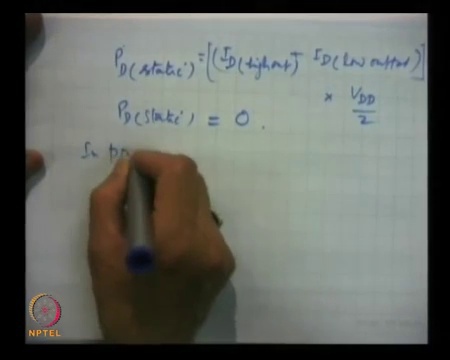 P_D(static) = [(I_D(high out) + I_D(low output)]
× V_DD/2
P_D(static) = 0.
In pr
NPTEL